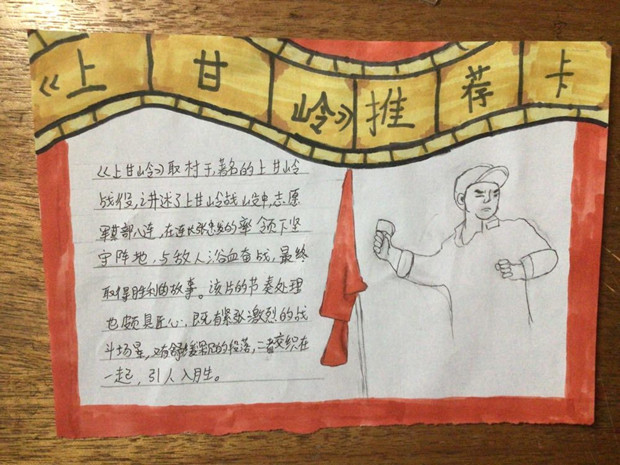 《上甘岭》推荐卡
《上甘岭》取材于著名的上甘岭
战役,讲述了上甘岭战役中,志愿
军某部八连,在连长张忠发的率领下坚
守阵地,与敌人浴血奋战,最终
取得胜利的故事。该片的节奏处理
也颇具匠心,既有紧张激烈的战
斗场景,又有舒缓的段落,二者交织在
一起,引人入胜。